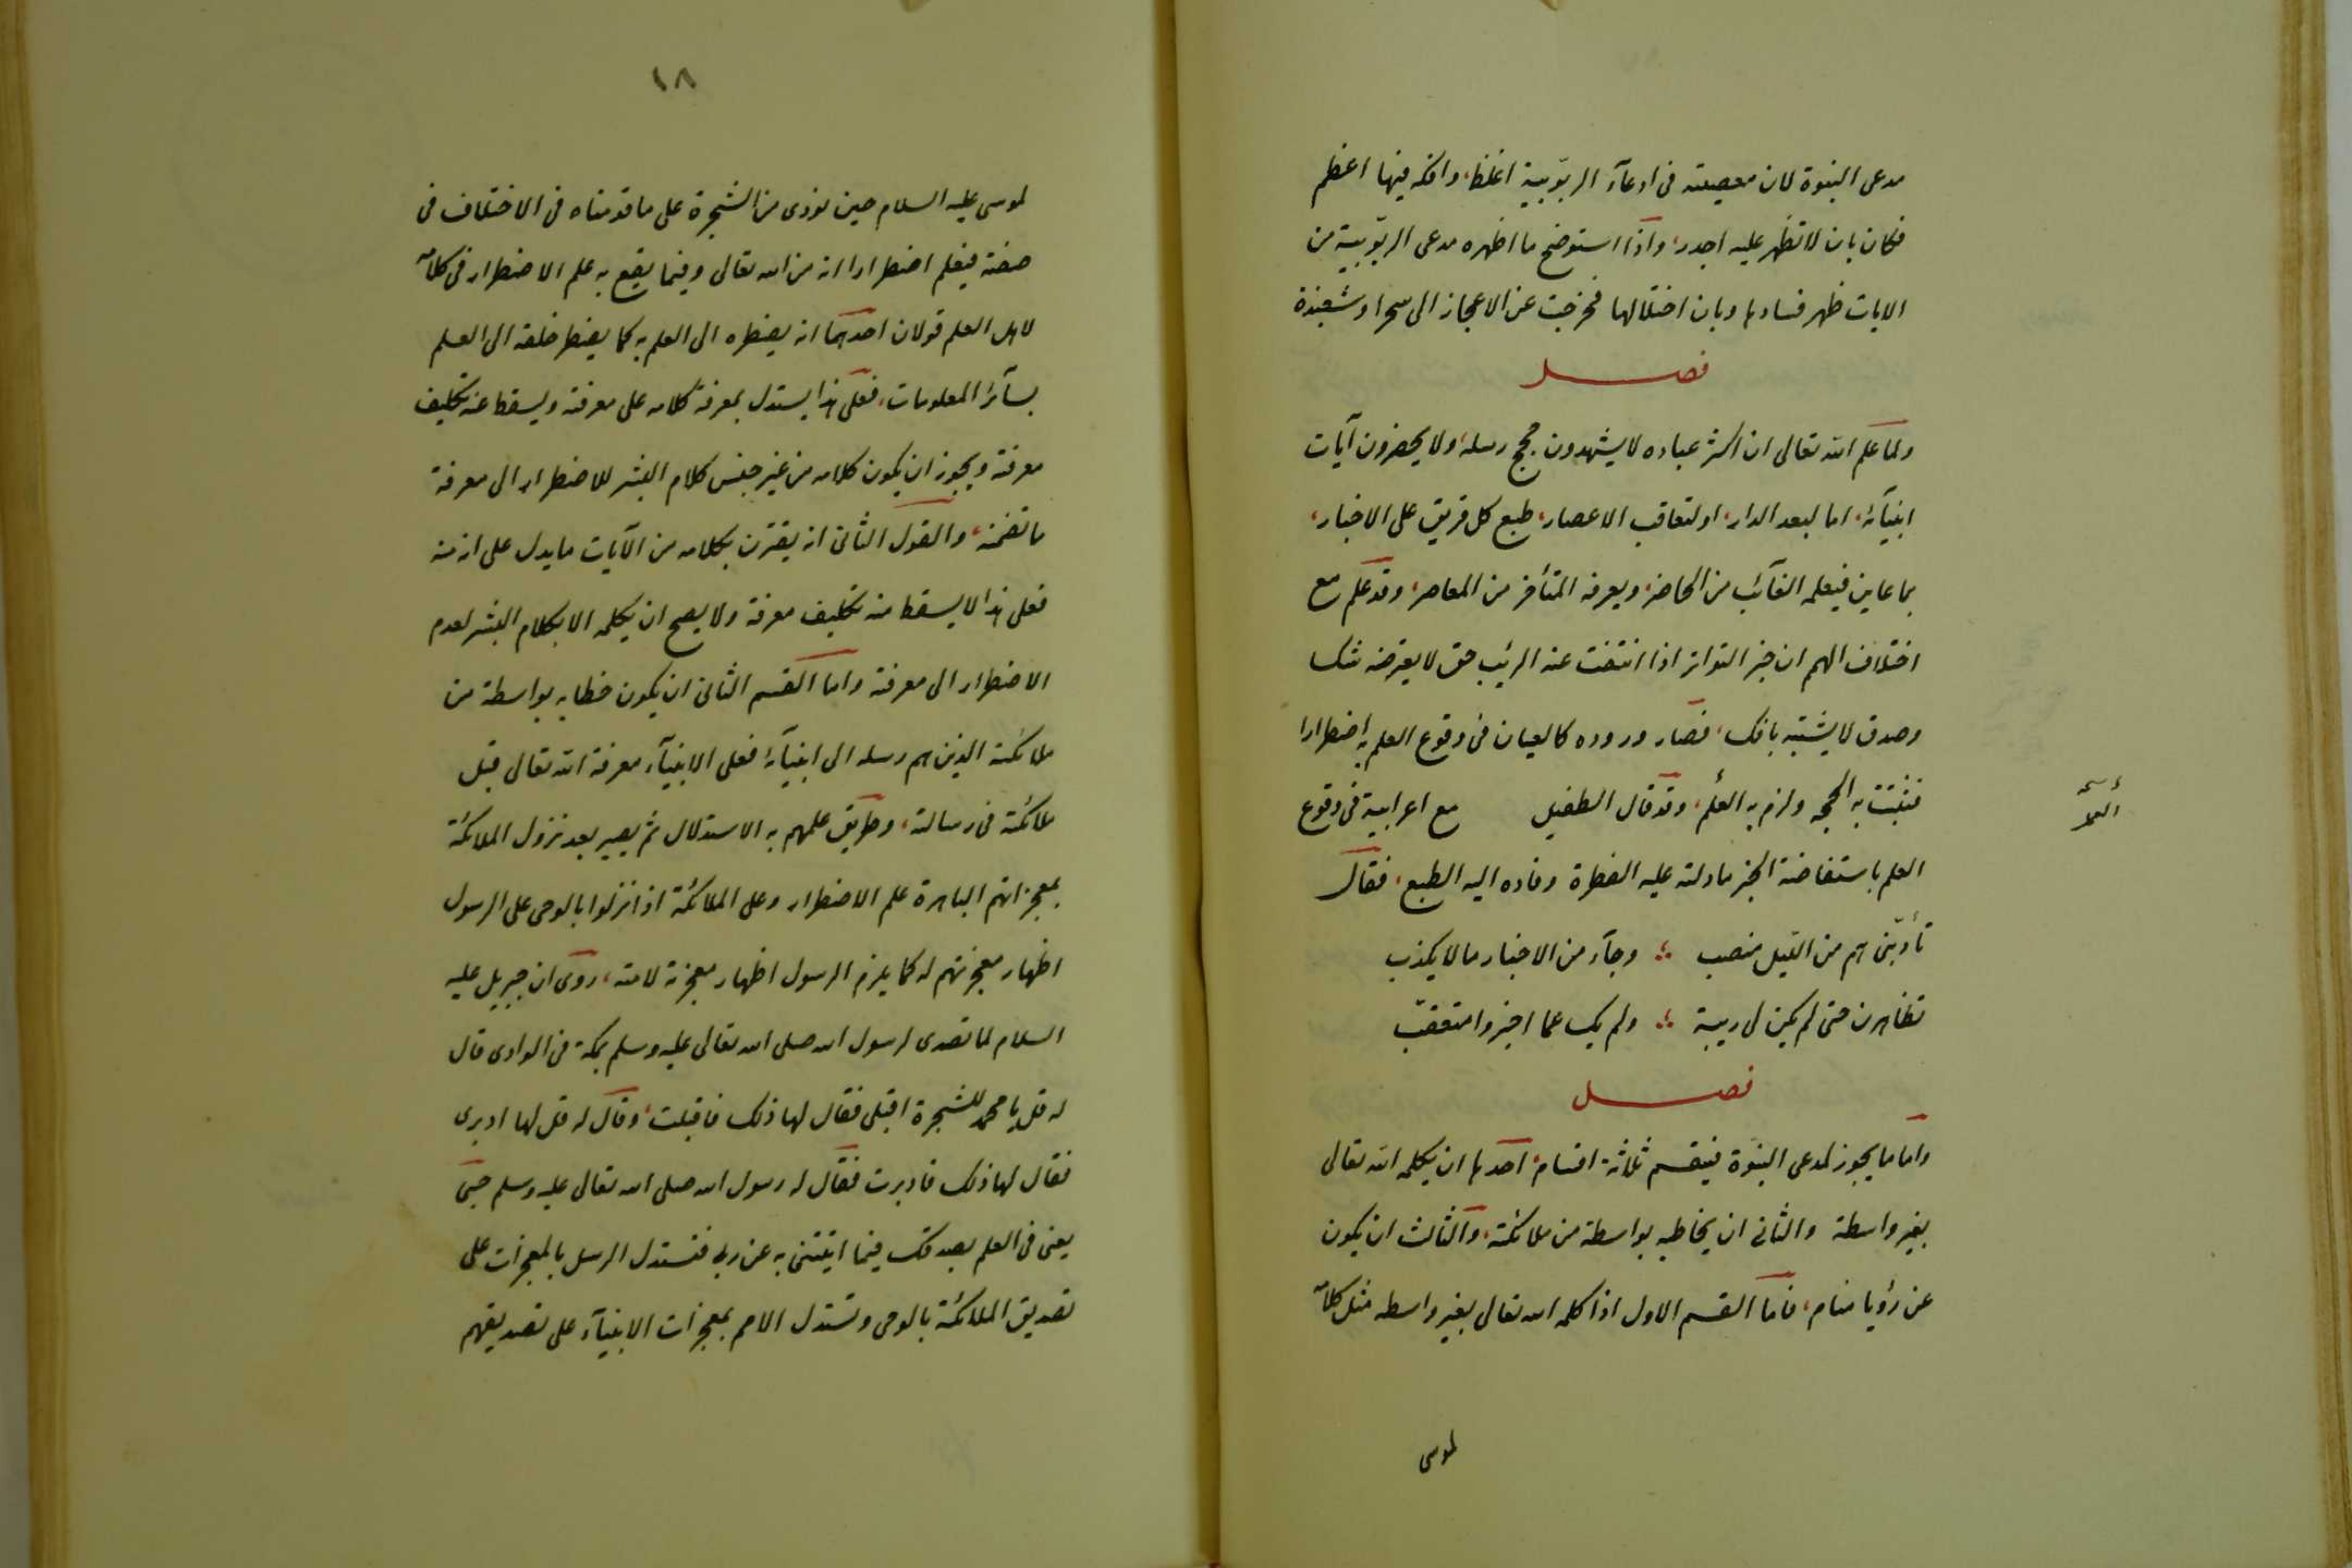 مدعى النبوة لان معصيته فى ادعآء الربوبية اغلظ، وافكه فيها اعظم
فكان بان لا تظهر عليه اجدر، واذا استوضح ما اظهره مدعى الربوبية من
الايات ظهر فسادها وبان اختلالها فخرجت عن الاعجاز الى سحر او شعبذة
فصل
ولما علم الله تعالى ان اكثر عباده لا يشهدون حجج رسله، ولا يحضرون آيات
انبيآئه، اما لبعد الدار، او لتعاقب الاعصار، طبع كل فريق على الاخبار،
بما عاين فيعلمه الغآئب من الحاضر، ويعرفه المتأخر من المعاصر، وقد علم مع
اختلاف الهمم ان خبر التواتر اذا انتفت عنه الريب حق لا يعترضه شك
وصدق لا يشتبه بافك، فصار وروده كالعيان فى وقوع العلم به اضطرارا
فثبتت به الحجه ولزم به العلم، وقد قال الطفيل مع اعرابية فى وقوع
العلم باستفاضة الخبر ما دلته عليه الفطرة وقاده اليه الطبع، فقال
تأوبنى هم من الليل منصب ؛ وجآء من الاخبار ما لا يكذب
تظاهرن حتى لم يكن لى ريبة ؛ ولم يك عما اخبروا متعقب
فصل
واما ما يجوز لمدعى النبوة فينقسم ثلاثة اقسام، احدها ان يكلمه الله تعالى
بغير واسطة والثانى ان يخاطبه بواسطة من ملائكته، والثالث ان يكون
عن رؤيا منام، فاما القسم الاول اذا كلمه الله تعالى بغير واسطه مثل كلامه
لموسى
١٨
لموسى عليه السلام حين نودى من الشجرة على ما قدمناه فى الاختلاف فى
صفته فيعلم اضطرارا انه من الله تعالى وفيما يقع به علم الاضطرار فى كلامه
لاهل العلم قولان احدهما انه يضطره الى العلم به كما يضطر خلقه الى العلم
بسآئر المعلومات، فعلى هذا يستدل بمعرفة كلامه على معرفته ويسقط عنه تكليف
معرفته ويجوز ان يكون كلامه من غير جنس كلام البشر للاضطرار الى معرفة
ما تضمنه، والقول الثانى انه يقترن بكلامه من الآيات ما يدل على انه منه
فعلى هذا لا يسقط منه تكليف معرفته ولا يصح ان يكلمه الا بكلام البشر لعدم
الاضطرار الى معرفته واما القسم الثانى ان يكون خطابه بواسطة من
ملائكته الذين هم رسله الى انبيآئه فعلى الانبيآء معرفة الله تعالى قبل
ملائكته فى رسالته، وطريق علمهم به الاستدلال ثم يصير بعد نزول الملائكة
بمعجزاتهم الباهرة علم الاضطرار وعلى الملائكة اذا نزلوا بالوحى على الرسول
اظهار معجزتهم له كما يلزم الرسول اظهار معجزته لامته، روى ان جبريل عليه
السلام لما تصدى لرسول الله صلى الله تعالى عليه وسلم بمكة فى الوادى قال
له قل يا محمد للشجرة اقبلى فقال لها ذلك فاقبلت، وقال له قل لها ادبرى
فقال لها ذلك فادبرت فقال له رسول الله صلى الله تعالى عليه وسلم حسبى
يعنى فى العلم بصدقك فيما اتيتنى به عن ربى فتستدل الرسل بالمعجزات على
تصديق الملائكة بالوحى وتستدل الامم بمعجزات الانبيآء على تصديقهم